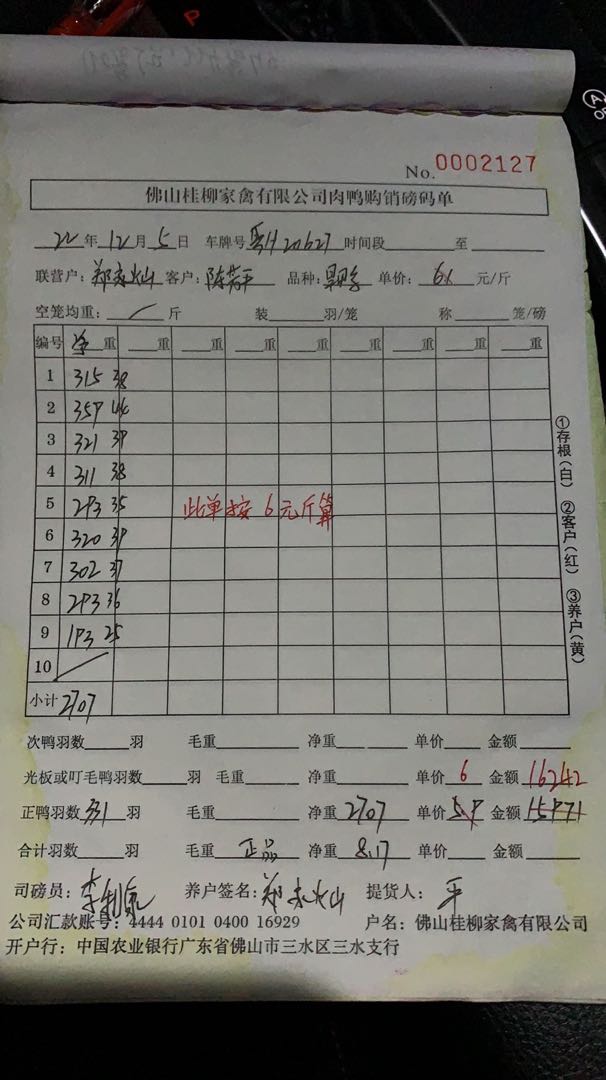 No. 0002127
佛山桂柳家禽有限公司肉鸭购销磅码单
22年12月5日 车牌号 20627 时间段 至
联营户：郑永灿 客户：陈 平 品种： 单价：6 元/斤
空笼均重： / 斤 装 羽/笼 称 笼/磅
编号 净重 重 重 重 重 重 重 重 重
1 315 38
2 359 44
3 321 39
4 311 38
5 293 35 此单按6元斤算
6 320 39
7 302 37
8 293 36
9 193 25
10 /
小计 2707
①存根(白) ②客户(红) ③养户(黄)
次鸭羽数 羽 毛重 净重 单价 金额
光板或叮毛鸭羽数 羽 毛重 净重 单价 6 金额 16242
正鸭羽数 331 羽 毛重 净重 2707 单价 5.9 金额 15971
合计羽数 羽 毛重 正品 净重 8.17 单价 金额
司磅员：李 养户签名：郑永灿 提货人：平
公司汇款账号：4444 0101 0400 16929 户名：佛山桂柳家禽有限公司
开户行：中国农业银行广东省佛山市三水区三水支行